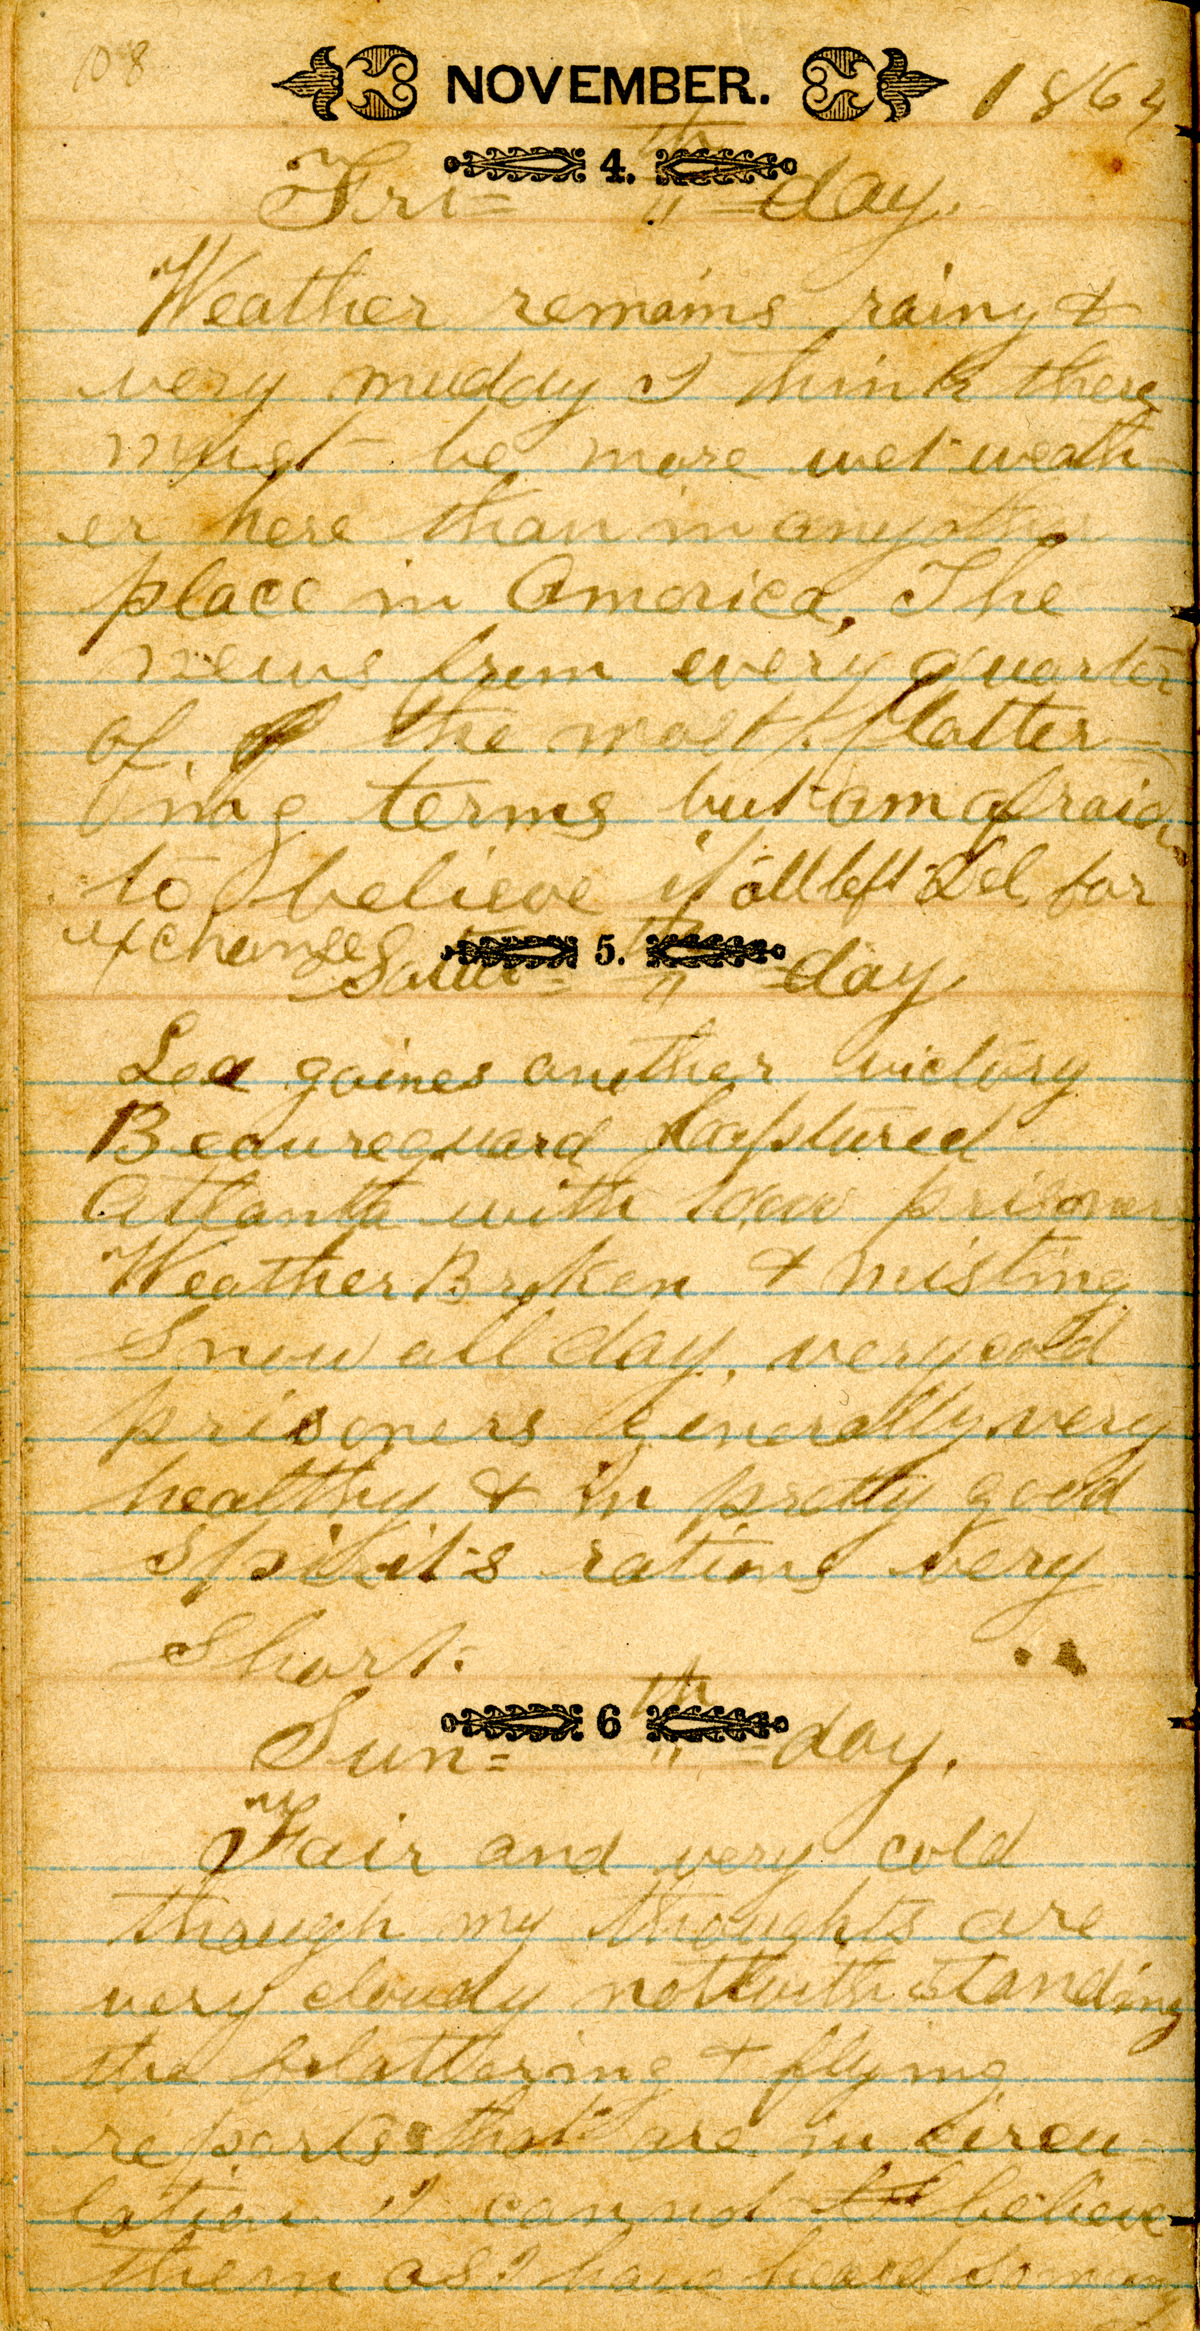 108
NOVEMBER. 1864
4.
Fri= th " =day.
Weather remains rainy &
very muddy I think there
must be more wet weath
er here than in any other
place in America, The
news from every quarter
of the most flatter=
ing terms but am afraid
to believe it all left Del. for
exchange
5.
Satur= th " =day,
Lea gaines another victory
Beaureguard Captured
Atlanta with prisoners
Weather Broken & misting
Snow all day. very cold
prisoners generally very
healthy & in pretty good
Spirits rations very
Short.
6
Sun= th " =day.
Fair and very cold
though my thoughts are
very cloudy nottwith standing
the flattering & flying
reports that are in circu-
lation I cannot believe
them as I have heard so many